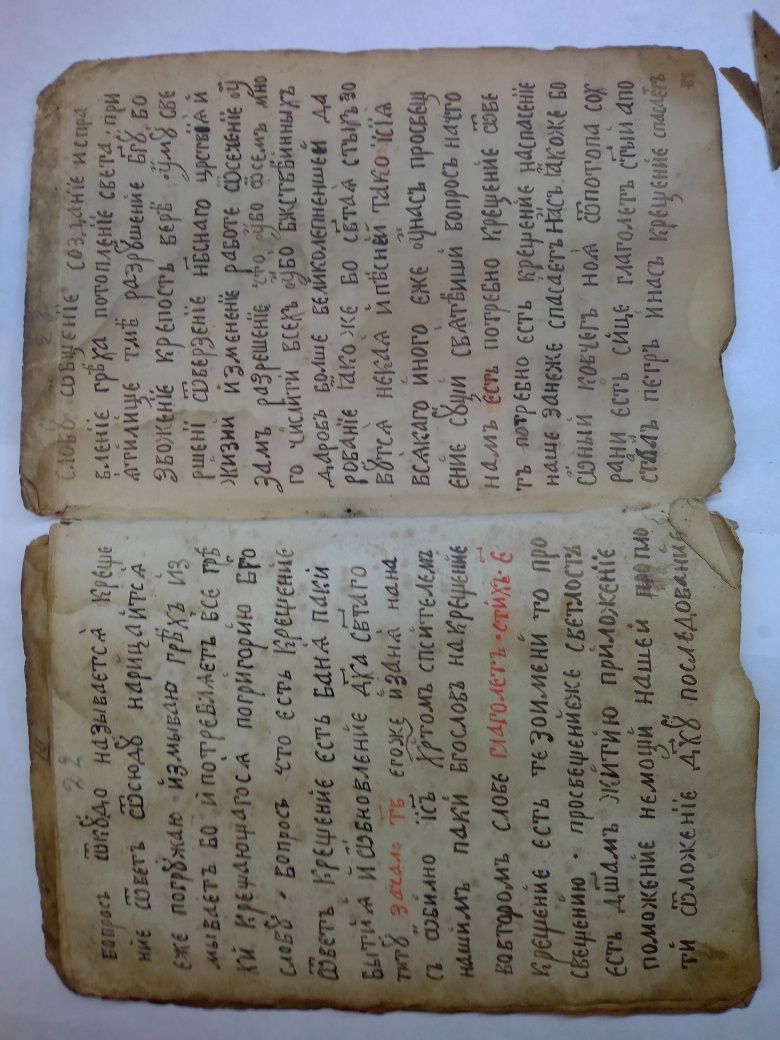 22
вопросъ ѿкꙋдо называетсѧ креще
ние ѿветъ ѿсюдꙋ нарицаитсѧ
еже погрꙋжаю измываю грѣхъ из
мываетъ бо и потреблѧетъ все грѣ
хи крещающагосѧ по григорию бг҃о
словꙋ · вопросъ что есть крещение
ѿветъ крещение есть банѧ паки
бытиѧ и ѡбновление дх҃а свѧтаго
титꙋ зачало т҃в егоже изанѧ на на
съ ѡбилно іс҃ъ хр҃томъ сп҃сителемъ
нашимъ паки бг҃ословъ на крещение
во второмъ слове глаголетъ · стихъ · є҃
крещение есть тезоимени то про
свещению · просвещение же светлость
есть дш҃амъ житию приложение
поможение немощи нашей плотио
ти ѿложение дх҃ꙋ последование
словꙋ сообщение создание испра
вление грѣха потопление света · при
ѧтилище тмѣ разрꙋшение бг҃ꙋ во
звожение крепость вере ꙋмꙋ све
ршени ѿверзение нб҃снаго црс҃твиѧ и
жизни изменение работе ѿсечение ꙋ
замъ разрешение что ꙋбо ѿ всемъ мно
го числити всехъ ꙋбо бж҃ственныхъ
даровъ болше великолепнейшей да
рование ꙗкоже бо свѧтаѧ ст҃ыхъ зо
вꙋтсѧ некаѧ и песней тако и сиѧ
всѧкаго иного еже ꙋ насъ просвещ
ение сꙋщи свѧтейши вопросъ на что
намъ есть потребно крещение ѿве
тъ потребно есть крещение на спасение
наше занеже спасаетъ насъ ꙗкоже во
ѡный ковчегъ ноѧ ѿ потопа сох
рани есть сице глаголетъ ст҃ый апо
столъ петръ и насъ крещение спасаетъ